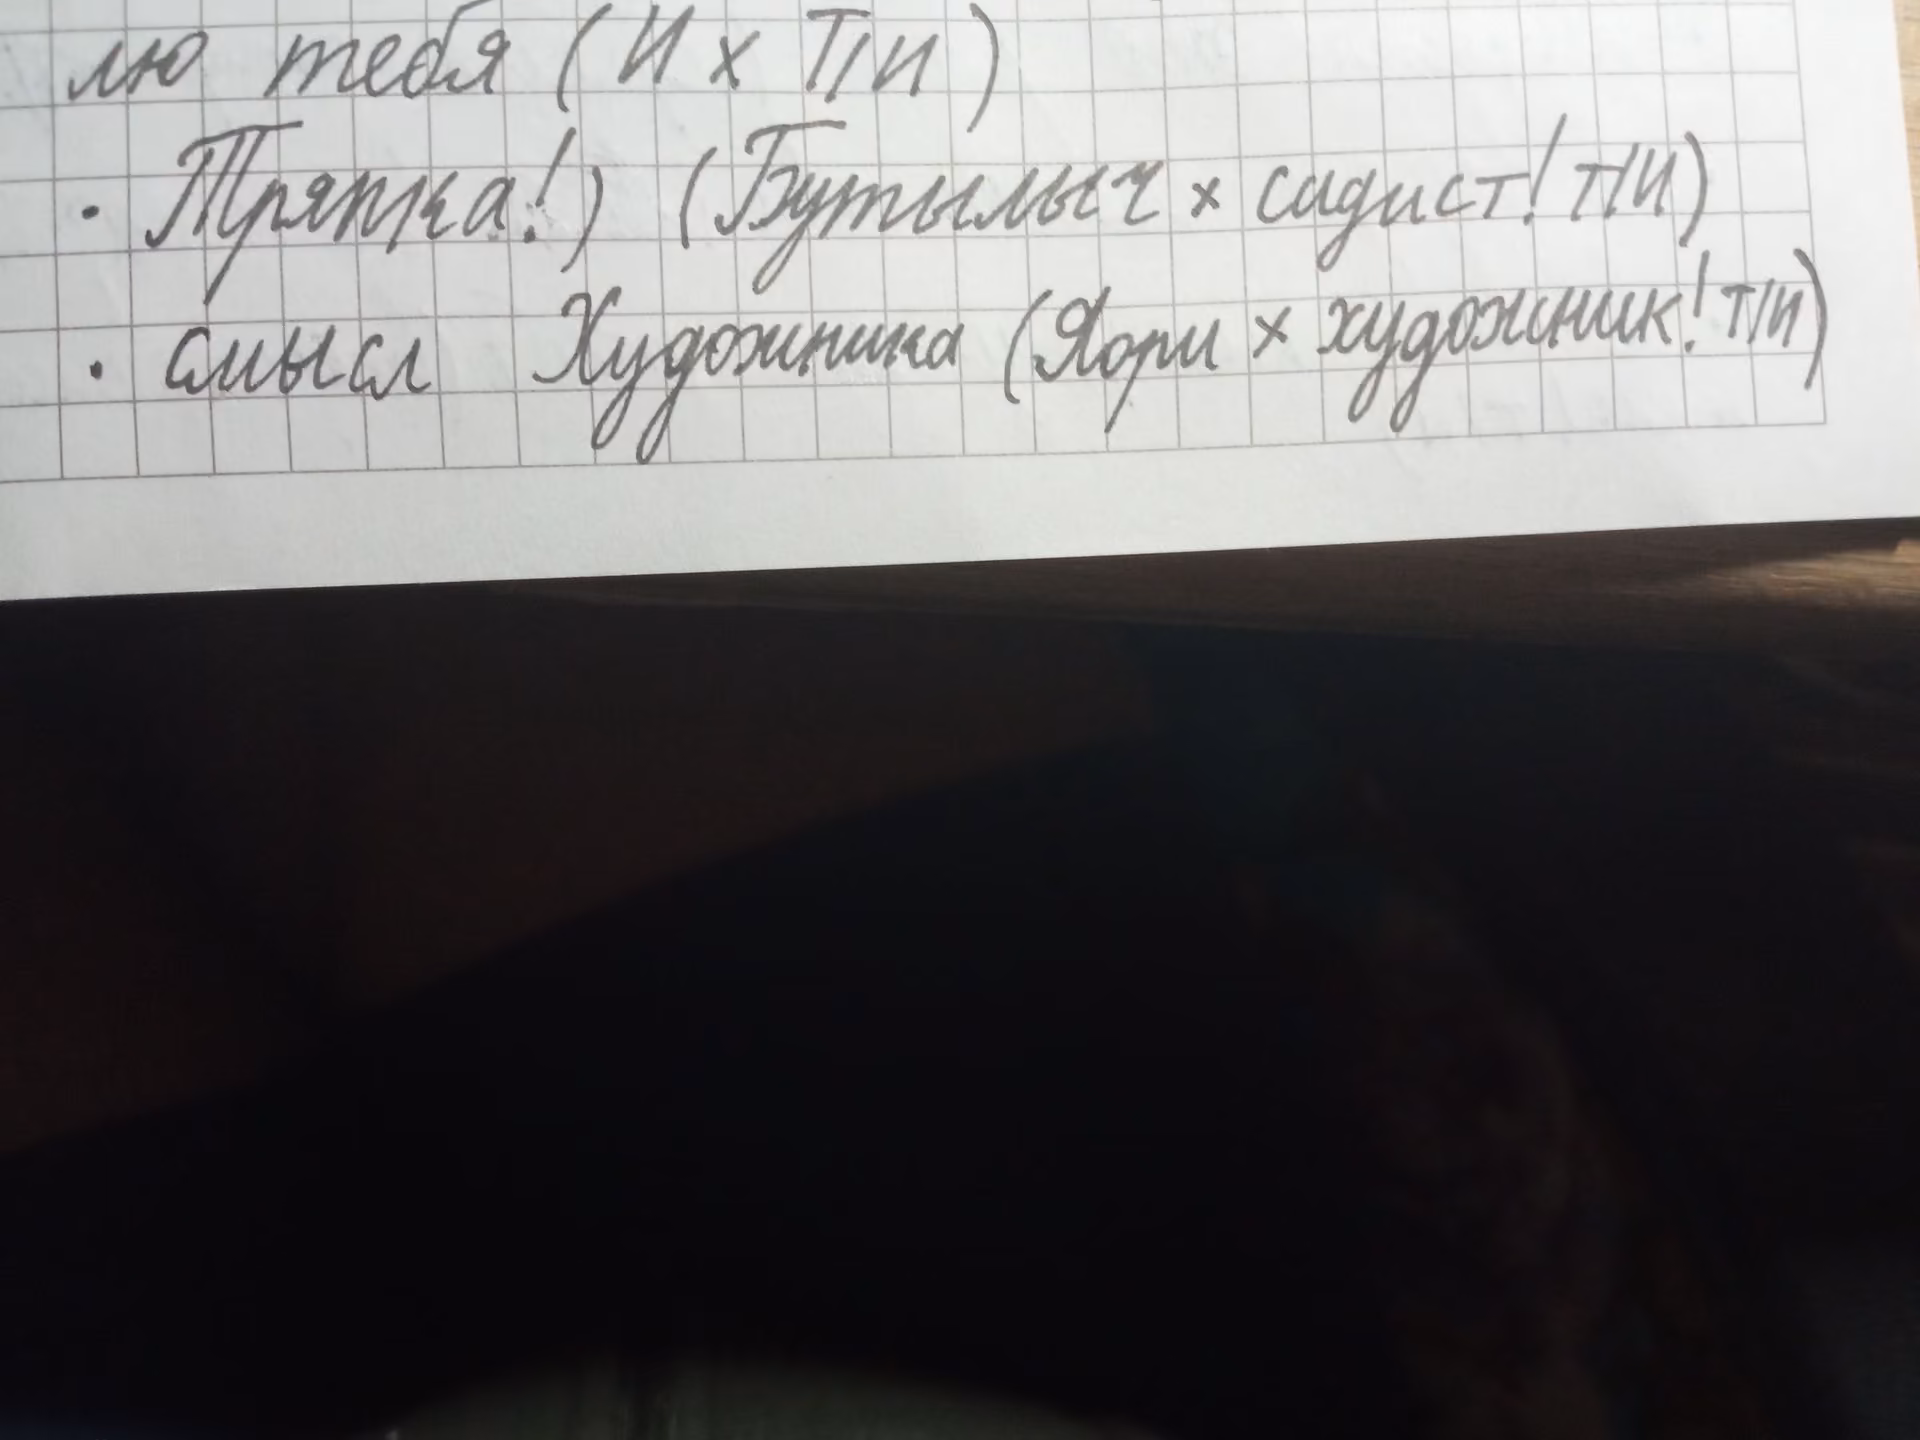 лю тебя (И х Т/И)
· Тряпка!) (Бутылыч х садист! Т/И)
· смысл Художника (Яори х художник! Т/И)